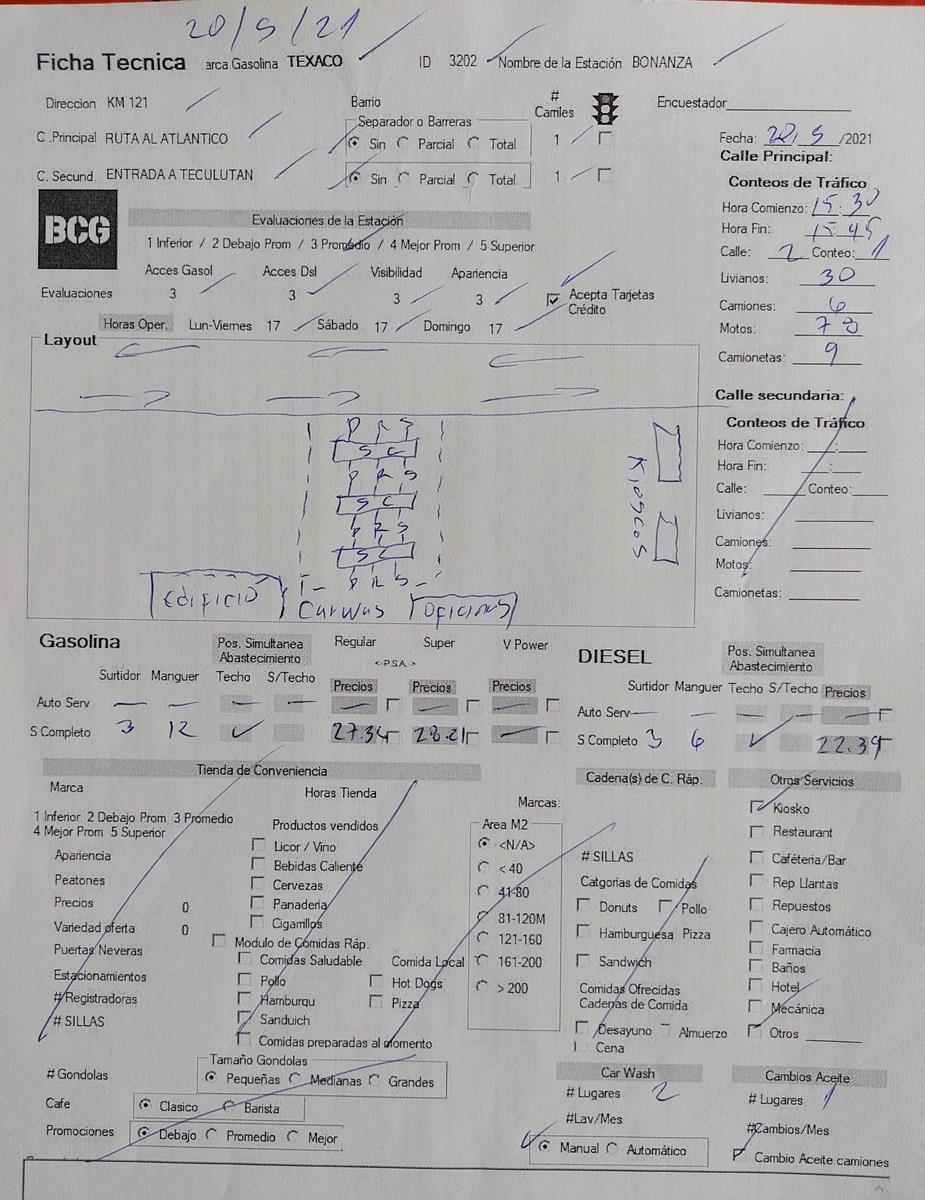 20/5/21
Ficha Tecnica arca Gasolina TEXACO ID 3202 Nombre de la Estación BONANZA
Direccion KM 121 Barrio # Carriles Encuestador
Separador o Barreras
C .Principal RUTA AL ATLANTICO Sin Parcial Total 1
C. Secund. ENTRADA A TECULUTAN Sin Parcial Total 1
Fecha: 20/5/2021
Calle Principal:
Conteos de Tráfico
Hora Comienzo: 15:30
Hora Fin: 15:45
Calle: 2 Conteo: 1
Livianos: 30
Camiones: 6
Motos: 70
Camionetas: 9
BCG
Evaluaciones de la Estación
1 Inferior / 2 Debajo Prom / 3 Promedio / 4 Mejor Prom / 5 Superior
Acces Gasol Acces Dsl Visibilidad Apariencia
Evaluaciones 3 3 3 3 Acepta Tarjetas
Crédito
Horas Oper. Lun-Viernes 17 Sábado 17 Domingo 17
Layout
P R S
S C
P R S
S C
P R S
S C
P R S
Kioscos
Edificio Carwas Oficinas
Calle secundaria:
Conteos de Tráfico
Hora Comienzo: :
Hora Fin: :
Calle: Conteo:
Livianos:
Camiones:
Motos:
Camionetas:
Gasolina Pos. Simultanea
Abastecimiento
Regular Super V Power
<-P.S.A.->
Surtidor Manguer Techo S/Techo Precios Precios Precios
Auto Serv — — — — — — —
S Completo 3 12 ✓ 27.34 28.21 —
DIESEL Pos. Simultanea
Abastecimiento
Surtidor Manguer Techo S/Techo Precios
Auto Serv — — — — —
S Completo 3 6 ✓ 22.39
Tienda de Conveniencia
Marca Horas Tienda
1 Inferior 2 Debajo Prom 3 Promedio
4 Mejor Prom 5 Superior
Apariencia
Peatones
Precios 0
Variedad oferta 0
Puertas Neveras
Estacionamientos
# Registradoras
# SILLAS
Productos vendidos
Licor / Vino
Bebidas Caliente
Cervezas
Panaderia
Cigarrillos
Modulo de Comidas Ráp.
Comidas Saludable Comida Local
Pollo Hot Dogs
Hamburqu Pizza
Sanduich
Comidas preparadas al momento
Marcas:
Area M2
<N/A>
< 40
41-80
81-120M
121-160
161-200
> 200
Cadena(s) de C. Ráp.
# SILLAS
Catgorias de Comidas
Donuts Pollo
Hamburguesa Pizza
Sandwich
Comidas Ofrecidas
Cadenas de Comida
Desayuno Almuerzo
Cena
Otros Servicios
Kiosko
Restaurant
Caféteria/Bar
Rep Llantas
Repuestos
Cajero Automático
Farmacia
Baños
Hotel
Mecánica
Otros
# Gondolas Tamaño Gondolas
Pequeñas Medianas Grandes
Cafe Clasico Barista
Promociones Debajo Promedio Mejor
Car Wash
# Lugares 2
#Lav/Mes
Manual Automático
Cambios Aceite
# Lugares 1
#Cambios/Mes
Cambio Aceite camiones